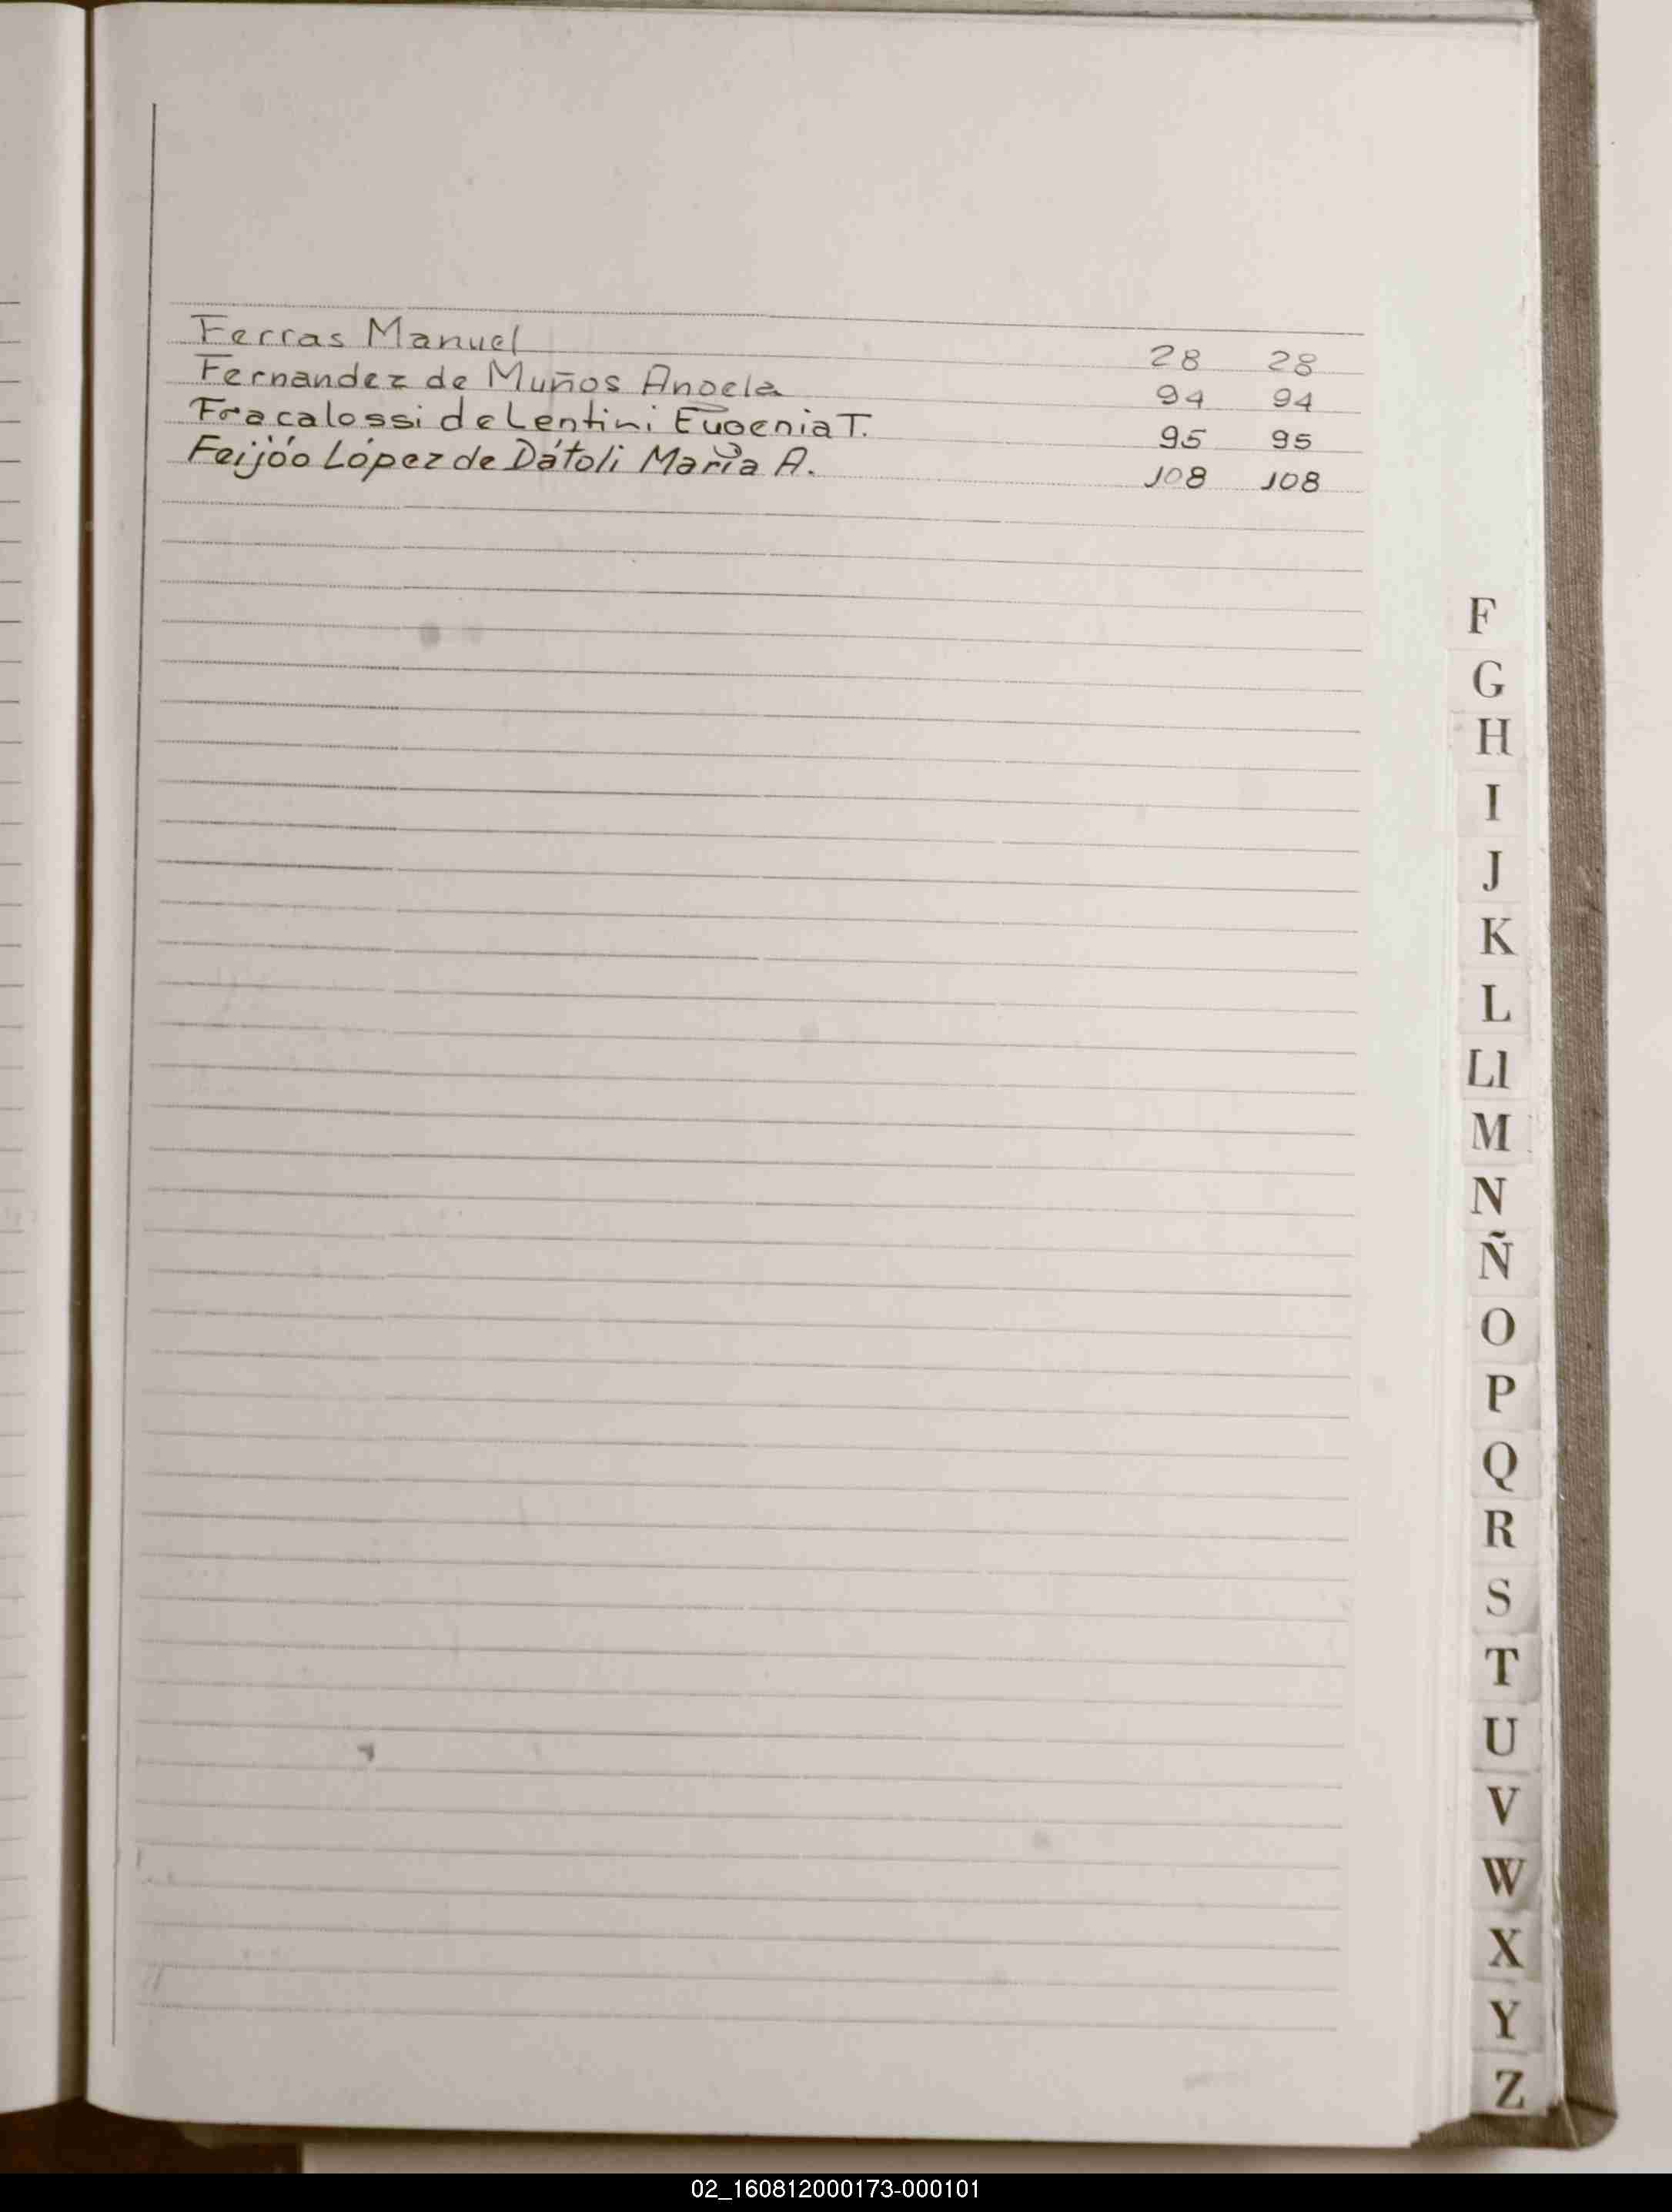 Ferras Manuel 28 28
Fernandez de Muños Angela 94 94
Fracalossi de Lentini Eugenia T. 95 95
Feijóo López de Dátoli María A. 108 108
F
G
H
I
J
K
L
Ll
M
N
Ñ
O
P
Q
R
S
T
U
V
W
X
Y
Z
02_160812000173-000101